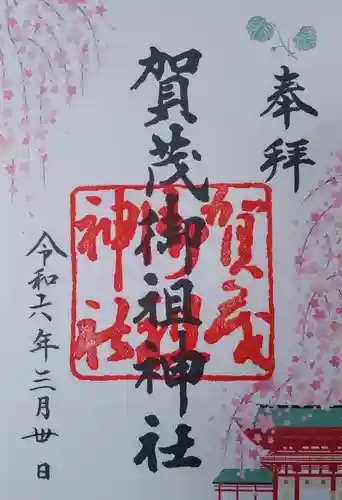 奉拝
賀茂御祖神社
賀茂
御祖
神社
令和六年三月丗日